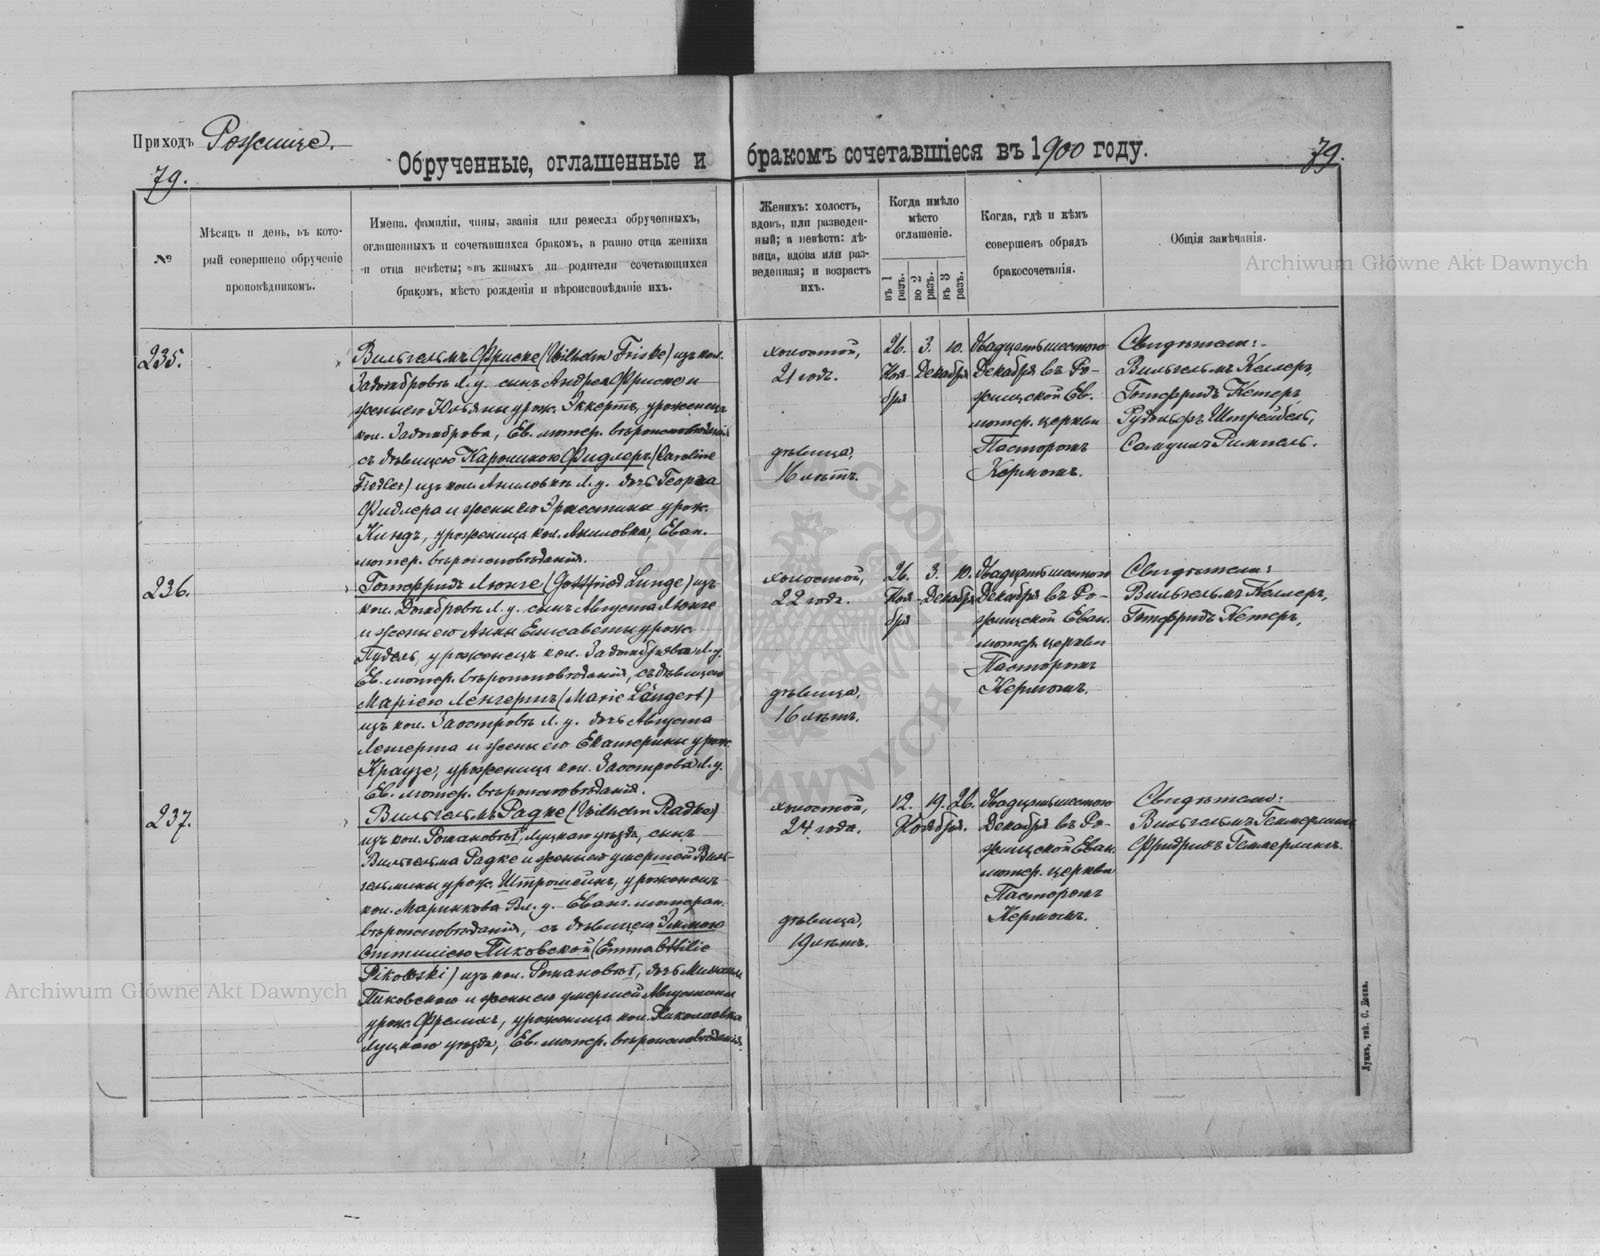 Приходъ Рожище.
Обрученные, оглашенные и бракомъ сочетавшіеся въ 1900 году.
79.
79.
№
Мѣсяцъ и день, въ кото-
рый совершено обрученіе
проповѣдникомъ.
Имена, фамиліи, чины, званія или ремесла обрученныхъ,
оглашенныхъ и сочетавшихся бракомъ, а равно отца жениха
и отца невѣсты; въ живыхъ ли родители сочетающихся
бракомъ, мѣсто рожденія и вѣроисповѣданіе ихъ.
Женихъ: холостъ,
вдовъ, или разведен-
ный; а невѣста: дѣ-
вица, вдова или раз-
веденная; и возрастъ
ихъ.
Когда имѣло
мѣсто
оглашеніе.
въ 1
разъ.
во 2
разъ.
въ 3
разъ.
Когда, гдѣ и кѣмъ
совершенъ обрядъ
бракосочетанія.
Общія замѣчанія.
Archiwum Główne Akt Dawnych
235.
Вильгельмъ Фриске (Wilhelm Friske) изъ кол.
сынъ Андрея Фриске и
жены его Юльяны урож. Эккертъ, уроженецъ
кол. Ев. лютер. вѣроисповѣданія
съ дѣвицею Каролиною Фидлеръ (Caroline
Fiedler) изъ кол. Аниловкъ Л. у. дочь Георга
Фидлера и жены его Эрнестины урож.
Киндъ, уроженица кол. Аниловка, Еван.
лютер. вѣроисповѣданія.
холостой,
21 годъ.
дѣвица,
16 лѣтъ.
26. 3. 10.
Ноя- Декабря
бря
Двадцать шестого
Декабря въ Ро-
жищской Ев.
лютер. церкви
Пасторомъ
Кермомъ.
Свидѣтели:
Вильгельмъ Келлеръ,
Готфридъ Кетеръ,
Рудольфъ Штрейбель,
Самуилъ Римпель.
236.
Готфридъ Люнге (Gottfried Lunge) изъ
кол. Л. у. сынъ Августа Люнге
и жены его Анны Елисаветы урож.
уроженецъ кол. Л. у.
Ев. лютер. вѣроисповѣданія, съ дѣвицею
Маріею Ленгертъ (Marie Längert)
изъ кол. Заостровъ Л. у. дочь Августа
Ленгерта и жены его Екатерины урож.
Краузе, уроженица кол. Заострова Л. у.
Ев. лютер. вѣроисповѣданія.
холостой,
22 года.
дѣвица,
16 лѣтъ.
26. 3. 10.
Ноя- Декабря
бря
Двадцать шестого
Декабря въ Ро-
жищской Еван.
лютер. церкви
Пасторомъ
Кермомъ.
Свидѣтели:
Вильгельмъ Келлеръ,
Готфридъ Кетеръ,
237.
Вильгельмъ Радке (Wilhelm Radke)
изъ кол. Романовъ I, Луцкаго уѣзда, сынъ
Вильгельма Радке и жены его умершей Виль-
гельмины урож. Штрошейнъ, уроженецъ
кол. Маринкова Вл. у. Еванг. лютеран.
вѣроисповѣданія, съ дѣвицею Эммою
Оттиліею Пиковской (Emma Ottilie
Pikowski) изъ кол. Романовъ I, дочь Михаила
Пиковскаго и жены его умершей Августины
урож. уроженица кол. Николаевка
Луцкаго уѣзда, Ев. лютер. вѣроисповѣданія.
холостой,
24 года.
дѣвица,
19 лѣтъ.
12. 19. 26.
Ноября.
Двадцать шестого
Декабря въ Ро-
жищской Еван.
лютер. церкви
Пасторомъ
Кермомъ.
Свидѣтели:
Вильгельмъ Геммерлингъ
Фридрихъ Геммерлингъ.
Archiwum Główne Akt Dawnych
Луцкъ, тип. С. Бокка.